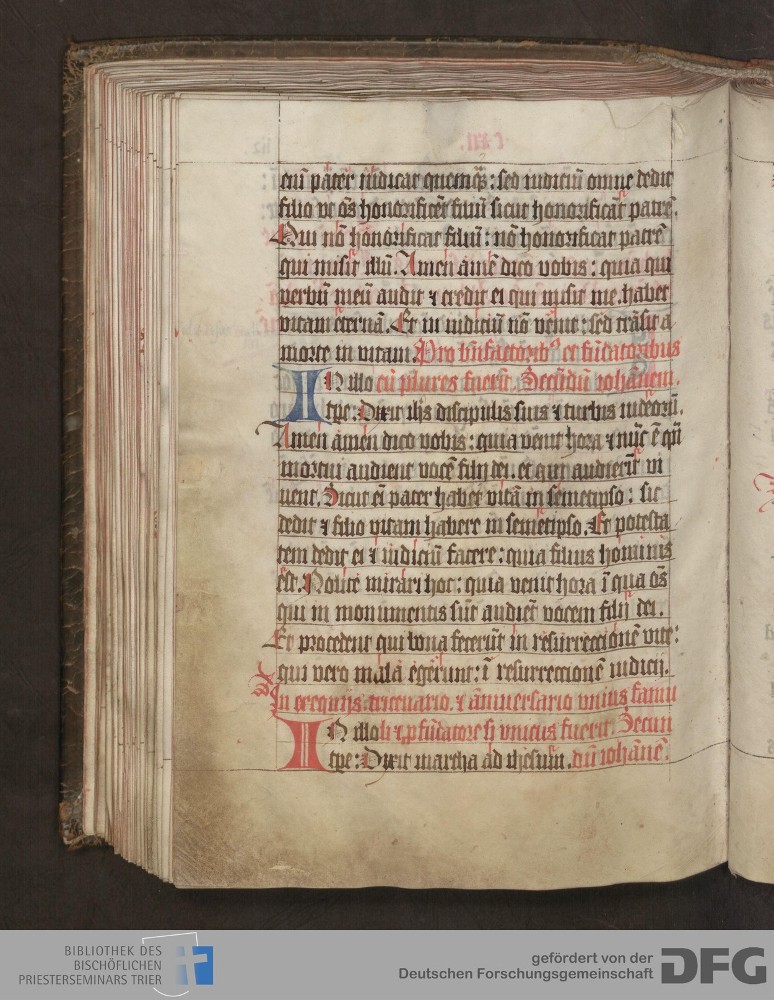 eniı̄ pater iudicat quemq̄ꝫ: sed iudiciū omne dedit
filio vt oēs honorificēt filiū sicut honorificāt patrē.
Qui nō honorificat filiū: nō honorificat patrē
qui misit illū. Amen amē dico vobis: quia qui
verbū meū audit ⁊ credit ei qui misit me. habet
vitam eternā. Et in iudiciū nō venit: sed trāsit a
morte in vitam. Pro bn̄factorib⁹ et fūdatoribus
IN illo cū plures fuerīt. Secūdū iohānem.
tpe: Dixit ihs discipulis suis ⁊ turbis iudeorū.
Amen amen dico vobis: quia venit hora ⁊ nūc ē qn̄
mortui audient vocē filij dei. et qui audierīt vi
uent. Sicut ei pater habet vitā in semetipso: sic
dedit ⁊ filio vitam habere in semetipso. Et potesta
tem dedit ei ⁊ iudiciū facere: quia filius hominis
est. Nolite mirari hoc: quia venit hora ī qua oēs
qui in monumentis sūt audiēt vocem filij dei.
Et procedent qui bona fecerūt in resurrectionē vite:
qui vero mala egerunt: ī resurrectionē iudicij.
In exequijs. tricenario. ⁊ anniuersario vnius famu
IN illo li ⁊ p̱ fūdatore si vnicus fuerit. Secun
tpe: Dixit martha ad ihesum. dū iohānē.
BIBLIOTHEK DES
BISCHÖFLICHEN
PRIESTERSEMINARS TRIER
gefördert von der
Deutschen Forschungsgemeinschaft
DFG